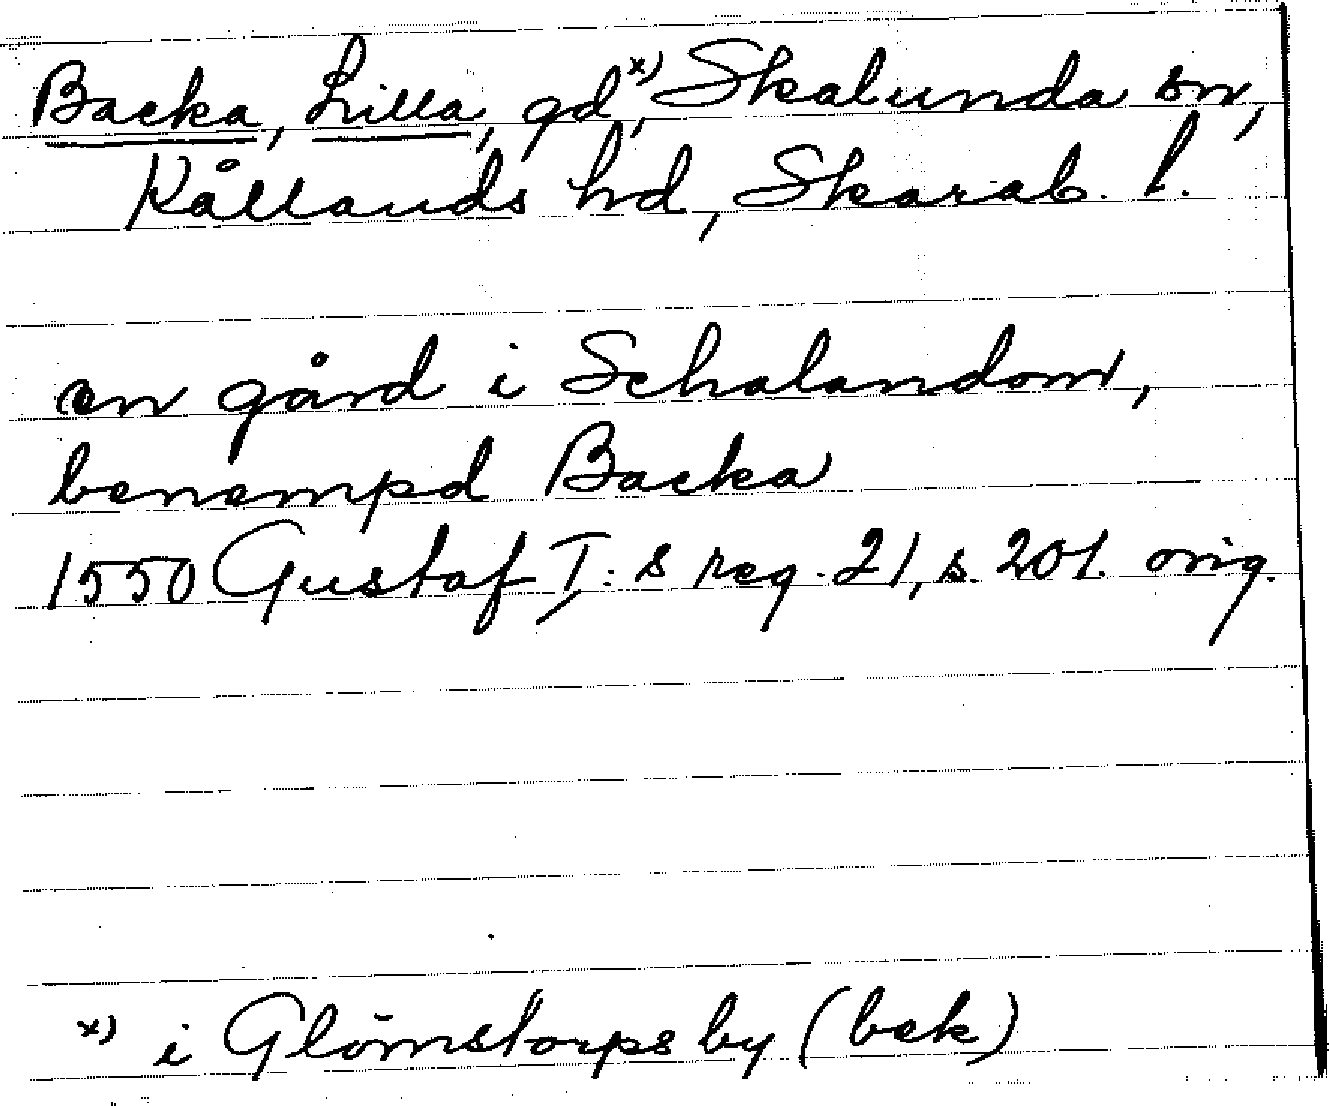 Backa, Lilla, gd x), Skalunda sn,
Kållands hd, Skarab. l.
en gård i Schalandom,
benempd Backa
1550 Gustaf I:s reg. 21, s. 201. orig.
x) i Glömstorps by (bek)